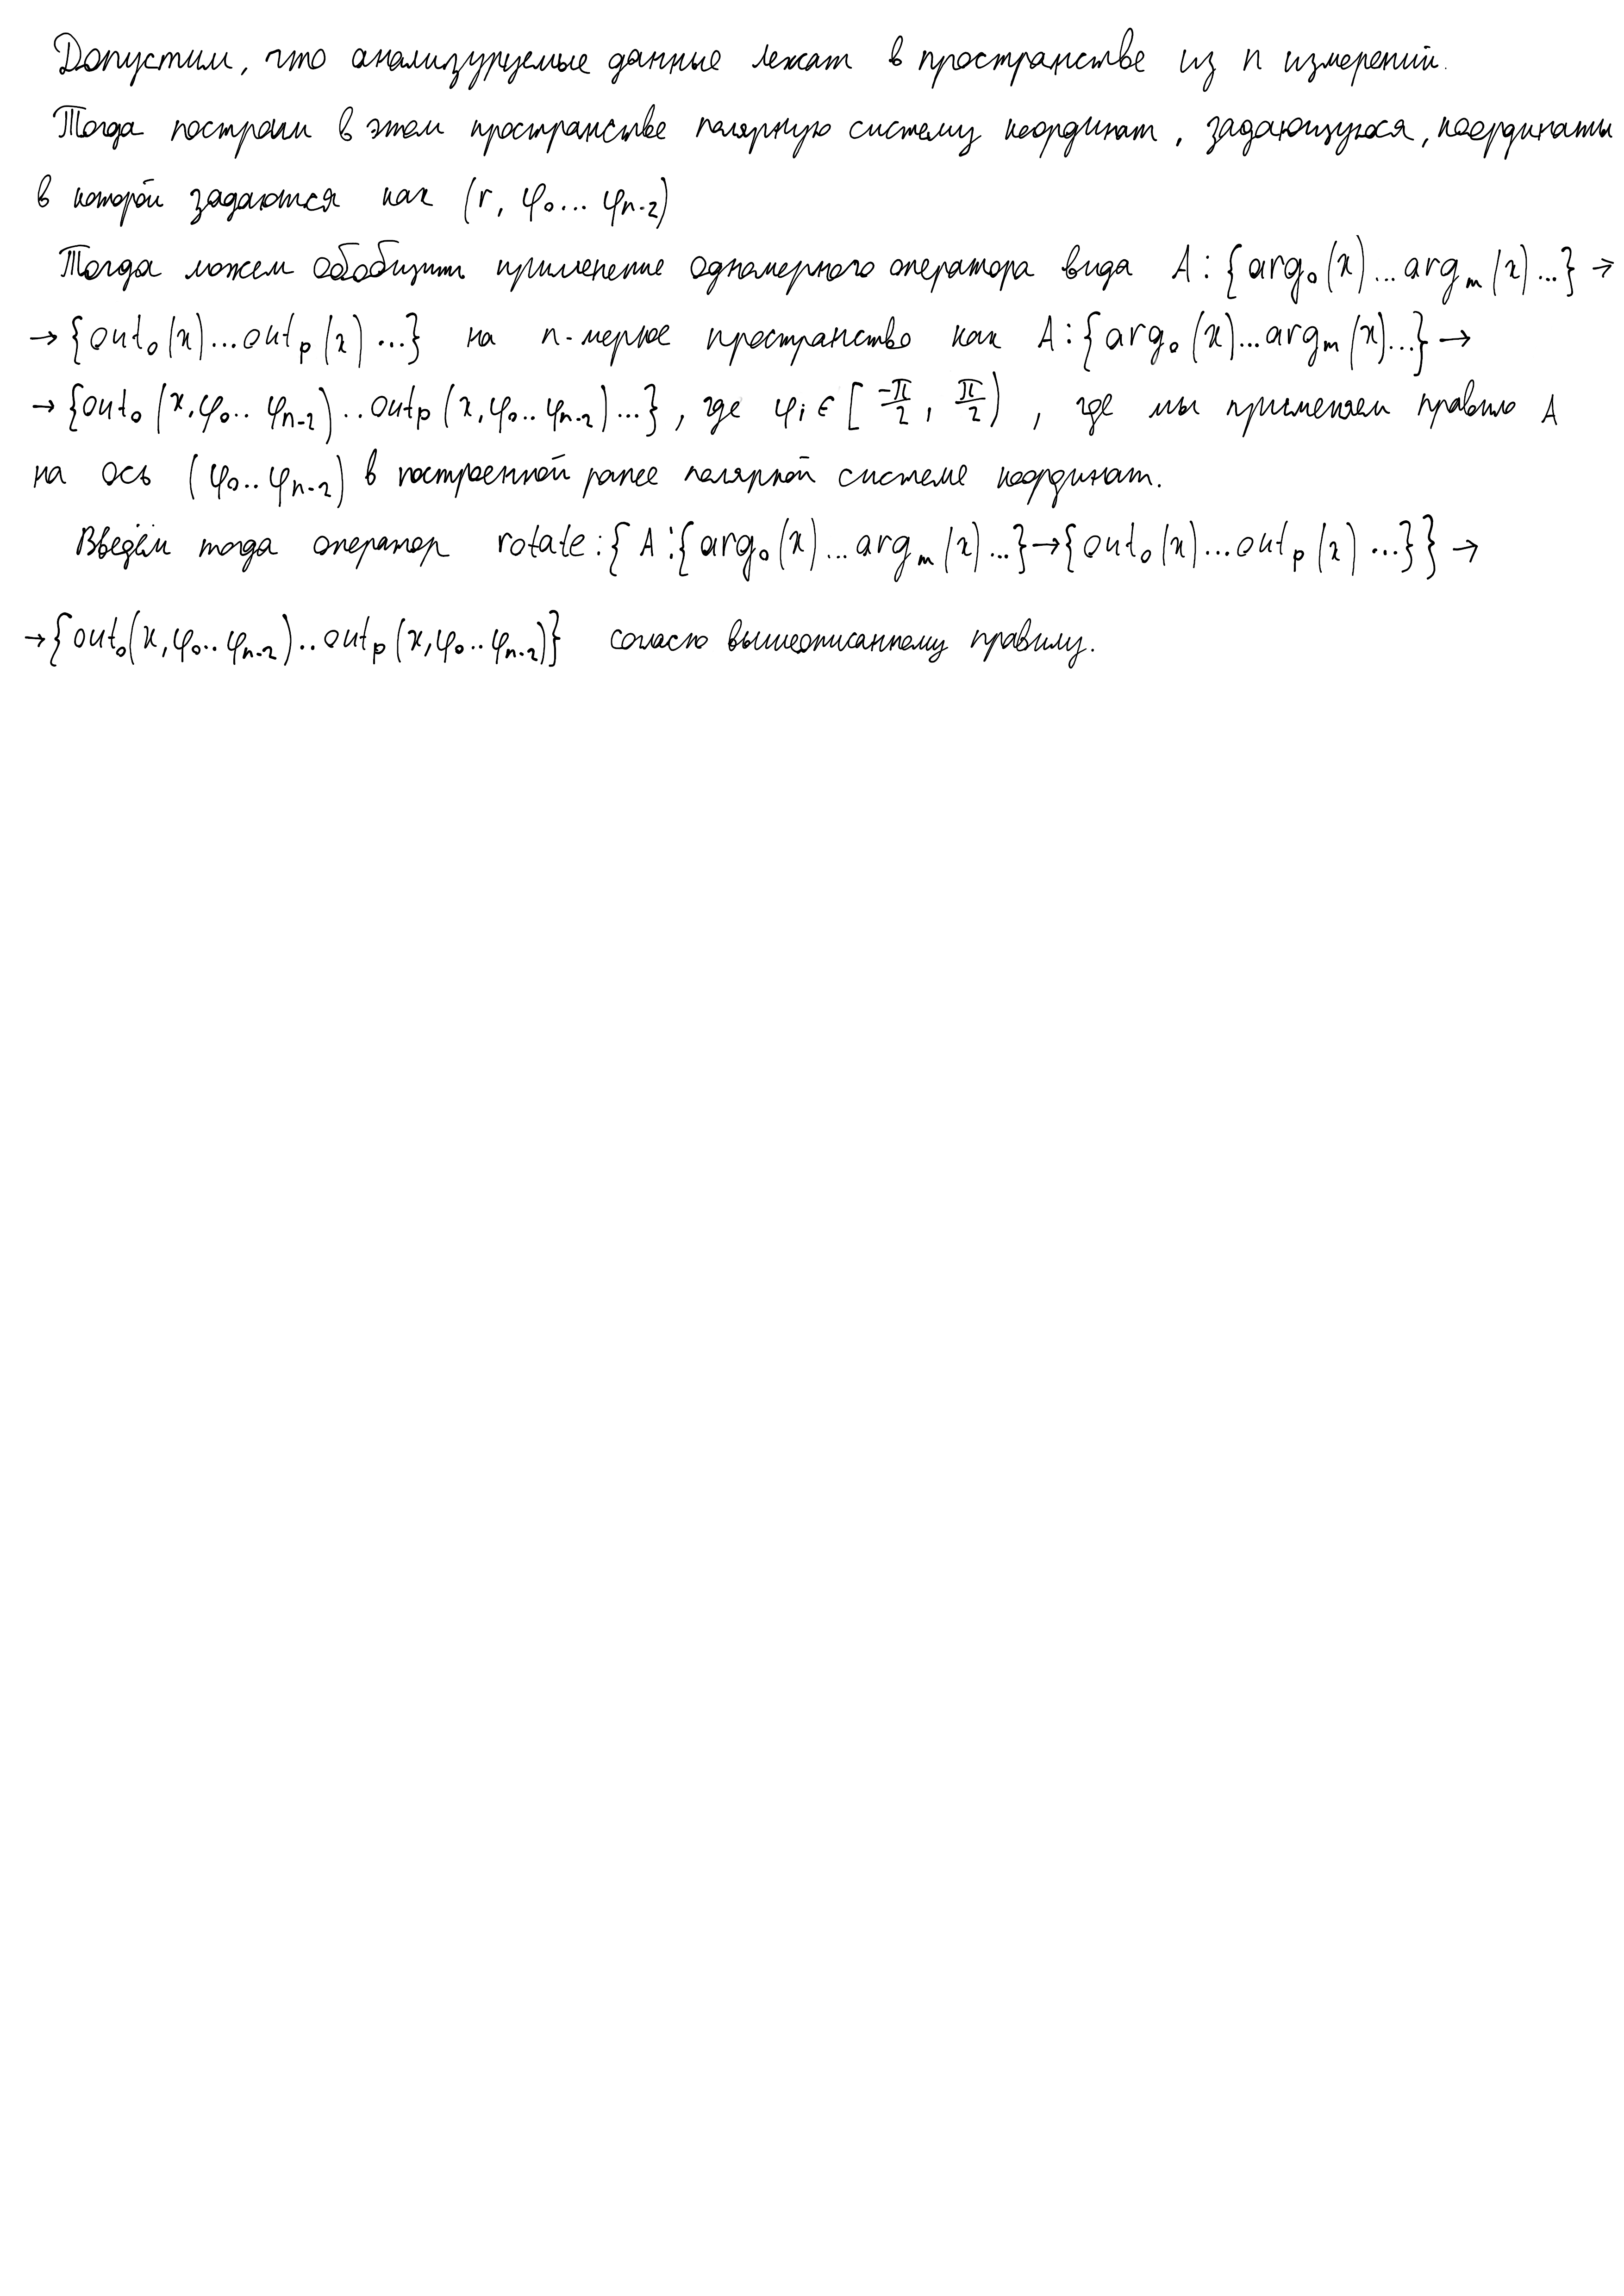 Допустим, что анализируемые данные лежат в пространстве из n измерений.
Тогда построим в этом пространстве полярную систему координат, задающуюся, координаты
в которой задаются как (r, φ₀... φₙ₋₂)
Тогда можем обобщить применение одномерного оператора вида A: {arg₀(x)...argₘ(x)...} →
→ {out₀(x)...outₚ(x)...} на n-мерное пространство как A: {arg₀(x)...argₘ(x)...} →
→ {out₀(x, φ₀.. φₙ₋₂)..outₚ(x, φ₀.. φₙ₋₂)...}, где φᵢ ∈ [-π/2, π/2), где мы применяем правило A
на ось (φ₀.. φₙ₋₂) в построенной ранее полярной системе координат.
Введём тогда оператор rotate: { A: {arg₀(x)...argₘ(x)...} → {out₀(x)...outₚ(x)...}} →
→ {out₀(x, φ₀.. φₙ₋₂)..outₚ(x, φ₀.. φₙ₋₂)} согласно вышеописанному правилу.